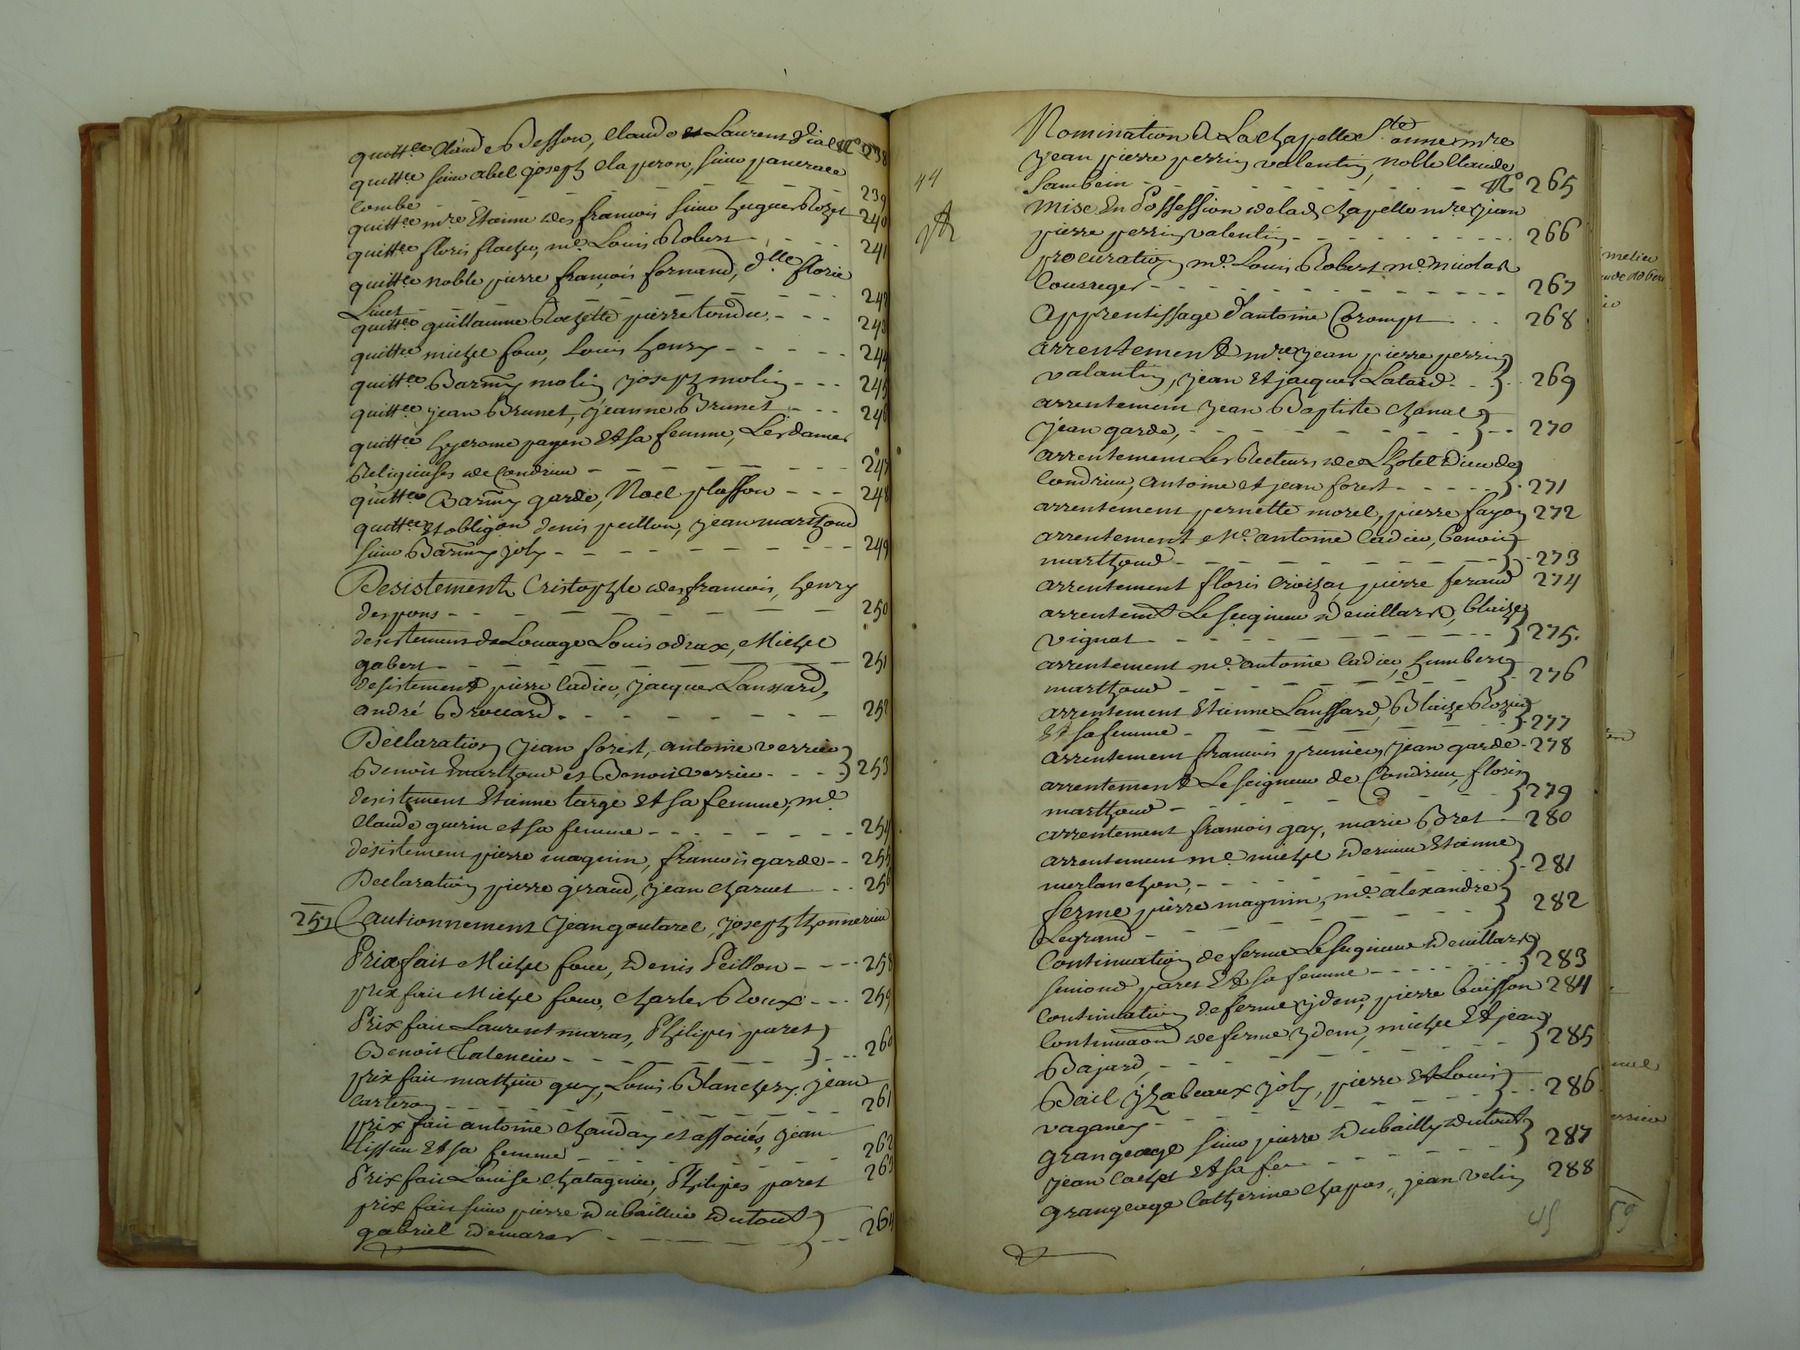 quittce Claude Besson, Claude et Laurens Vial No 238
quittce sieur abel joseph claperon, sieur pancrace
combe - - - 239
quittce mre Etienne des francois sieur hugues Rozet 240
quittce floris flachy, me Louis Robert - - - 241
quittce noble pierre francois fornand, dlle florie
Livet - - - 242
quittce guillaume Rozette pierre tondu - - - 243
quittce michel foux, Louis henry - - - 244
quittce Barmy molin joseph molin - - - 245
quittce jean Brunet, jeanne Brunet - - - 246
quittce hyerome payen Et sa femme, Les dames
Religieuses de Condrieu - - - 247
quittce Barmy garde, Noel plasson - - - 248
quittce Et obligon denis peillon, jean marthoud
sieur Barmy joly - - - 249
Desistement Cristophle des francois, henry
despons - - - 250
desistement de Louage Louis odrax, Michel
gabert - - - 251
desistement pierre Cadier, jacques Lanssard,
andré Brossard - - - 252
Declaration jean forest, antoine verrieu
Benoit marthoud et Benoit verrieu - - - 253
desistement Etienne targe Et sa femme, me
Claude guerin et sa femme - - - 254
desistement pierre magnin, francois garde - - 255
Declaration pierre giraud, jean charvet - - 256
257 Cautionnement jean goutarel, joseph thonnerieu
Prixfait Michel foux, Denis Peillon - - - 258
prix fait Michel foux, charles Roux - - - 259
Prix fait Laurent maras, Philipes paret
Benoit Valencieu - - - 260
prix fait mathieu guy, Louis Blanchery jean
Carteron - - - 261
prix fait antoine chauday et associés, jean
tissieu Et sa femme - - - 262
Prix fait Louise chatagnier, Philipes paret 263
prix fait sieur pierre Dubaillier Dutout
gabriel Demares - - - 264
44
Nomination de La chapelle Ste anne mre
jean pierre perrin valentin, noble Claude
Sambein - - - No 265
Mise En Possession de lad chapelle mre jean
pierre perrin valentin - - - 266
procuration me Louis Robert me nicolas
Courreger - - - 267
Apprentissage d'antoine Corompt - - 268
arrentement mre jean pierre perrin
valantin, jean Et jacques Latard - - 269
arrentement jean Baptiste chanal
jean garde, - - - 270
arrentement Les Recteurs de L'hotel Dieu de
Condrieu, antoine et jean forest - - - 271
arrentement pernette morel, pierre fayon 272
arrentement Me antoine Cadieu, Benoit
marthoud - - - 273
arrentement floris Croizat, pierre feraud 274
arrentemt Le seigneur Devillars, blaize
vignat - - - 275.
arrentement me antoine Cadieu, humbert
marthoud - - - 276
arrentement Etienne Lanssard, Blaize Rozier
Et sa femme - - - 277
arrentement francois prunier, jean garde - 278
arrentement Le seigneur de Condrieu, floris
marthoud - - - 279
arrentement francois gay, marie Bret - 280
arrentement me michel Dervieu Etienne
merlanchon, - - - 281
ferme pierre magnin, me alexandre
Legrand - - - 282
Continuation de ferme Le seigneur Devillars
simond paret Et sa femme - - - 283
Continuation de ferme ydem, pierre buisson 284
Continuaon de ferme ydem, michel Et jean
Bajard, - - - 285
Bail yzabeaux joly, pierre Et Louis
vaganey - - - 286
grangeage sieur pierre Dubailly Dutout
jean Cachet Et sa fe - - - 287
grangeage Catherine chapas, jean velin 288
45
59